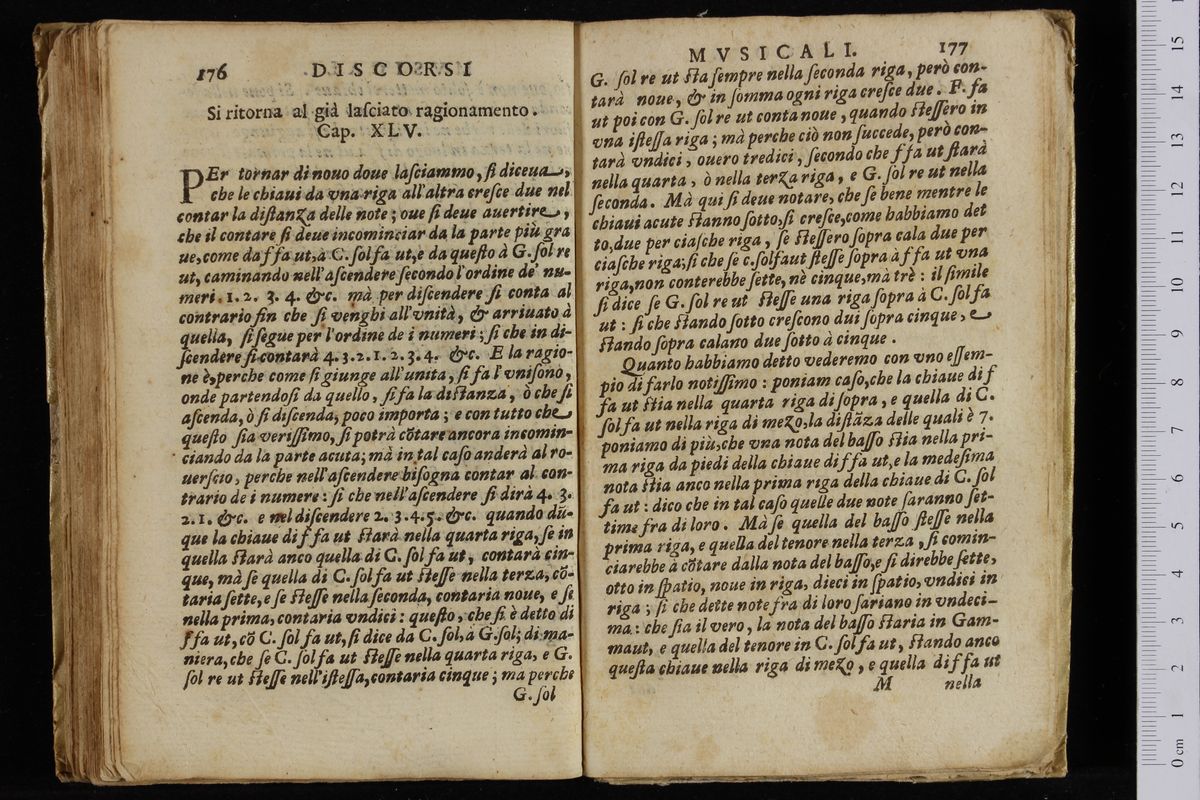 176 DISCORSI
Si ritorna al già laſciato ragionamento.
Cap. XLV.
PEr tornar di nouo doue laſciammo, ſi diceua,
che le chiaui da vna riga all'altra creſce due nel
contar la diſtanza delle note; oue ſi deue auertire,
che il contare ſi deue incominciar da la parte più gra
ue, come da f fa ut, à C. ſol fa ut, e da queſto à G. ſol re
ut, caminando nell'aſcendere ſecondo l'ordine de' nu-
meri. 1. 2. 3. 4. &c. mà per diſcendere ſi conta al
contrario fin che ſi venghi all'vnità, & arriuato à
quella, ſi ſegue per l'ordine de i numeri; ſi che in di-
ſcendere ſi contarà 4. 3. 2. 1. 2. 3. 4. &c. E la ragio-
ne è, perche come ſi giunge all'unita, ſi fa l'vniſono,
onde partendoſi da quello, ſi fa la diſtanza, ò che ſi
aſcenda, ò ſi diſcenda, poco importa; e con tutto che
queſto ſia veriſſimo, ſi potrà cõtare ancora incomin-
ciando da la parte acuta; mà in tal caſo anderà al ro-
uerſcio, perche nell'aſcendere biſogna contar al con-
trario de i numere: ſi che nell'aſcendere ſi dirà 4. 3.
2. 1. &c. e nel diſcendere 2. 3. 4. 5. &c. quando dũ-
que la chiaue di f fa ut ſtarà nella quarta riga, ſe in
quella ſtarà anco quella di C. ſol fa ut, contarà cin-
que, mà ſe quella di C. ſol fa ut ſteſſe nella terza, cõ-
taria ſette, e ſe ſteſſe nella ſeconda, contaria noue, e ſe
nella prima, contaria vndici: queſto, che ſi è detto di
f fa ut, cõ C. ſol fa ut, ſi dice da C. ſol, à G. ſol; di ma-
niera, che ſe C. ſol fa ut ſteſſe nella quarta riga, e G.
ſol re ut ſteſſe nell'iſteſſa, contaria cinque; ma perche
G. ſol
MVSICALI. 177
G. ſol re ut ſta ſempre nella ſeconda riga, però con-
tarà noue, & in ſomma ogni riga creſce due. F. fa
ut poi con G. ſol re ut conta noue, quando ſteſſero in
vna iſteſſa riga; mà perche ciò non ſuccede, però con-
tarà vndici, ouero tredici, ſecondo che f fa ut ſtarà
nella quarta, ò nella terza riga, e G. ſol re ut nella
ſeconda. Mà qui ſi deue notare, che ſe bene mentre le
chiaui acute ſtanno ſotto, ſi creſce, come habbiamo det
to, due per ciaſche riga, ſe ſteſſero ſopra cala due per
ciaſche riga; ſi che ſe c. ſolfaut ſteſſe ſopra à f fa ut vna
riga, non conterebbe ſette, nè cinque, mà trè: il ſimile
ſi dice ſe G. ſol re ut ſteſſe una riga ſopra à C. ſol fa
ut: ſi che ſtando ſotto creſcono dui ſopra cinque, e
ſtando ſopra calano due ſotto à cinque.
Quanto habbiamo detto vederemo con vno eſſem-
pio di farlo notiſſimo: poniam caſo, che la chiaue di f
fa ut ſtia nella quarta riga di ſopra, e quella di C.
ſol fa ut nella riga di mezo, la diſtãza delle quali è 7.
poniamo di più, che vna nota del baſſo ſtia nella pri-
ma riga da piedi della chiaue di f fa ut, e la medeſima
nota ſtia anco nella prima riga della chiaue di C. ſol
fa ut: dico che in tal caſo quelle due note ſaranno ſet-
time fra di loro. Mà ſe quella del baſſo ſteſſe nella
prima riga, e quella del tenore nella terza, ſi comin-
ciarebbe à cõtare dalla nota del baſſo, e ſi direbbe ſette,
otto in ſpatio, noue in riga, dieci in ſpatio, vndici in
riga; ſi che dette note fra di loro ſariano in vndeci-
ma: che ſia il vero, la nota del baſſo ſtaria in Gam-
maut, e quella del tenore in C. ſol fa ut, ſtando anco
queſta chiaue nella riga di mezo, e quella di f fa ut
M nella
0 cm 1 2 3 4 5 6 7 8 9 10 11 12 13 14 15